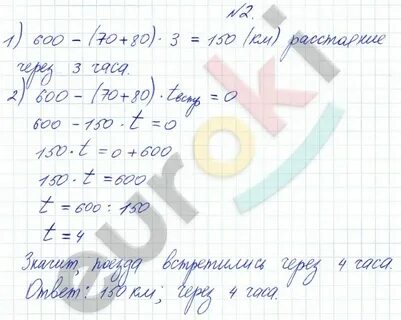 №2.
1) 600 - (70 + 80) · 3 = 150 (км) расстояние
через 3 часа.
2) 600 - (70 + 80) · t встр = 0
600 - 150 · t = 0
150 · t = 0 + 600
150 · t = 600
t = 600 : 150
t = 4
Значит, поезда встретились через 4 часа.
Ответ: 150 км; через 4 часа.
euroki